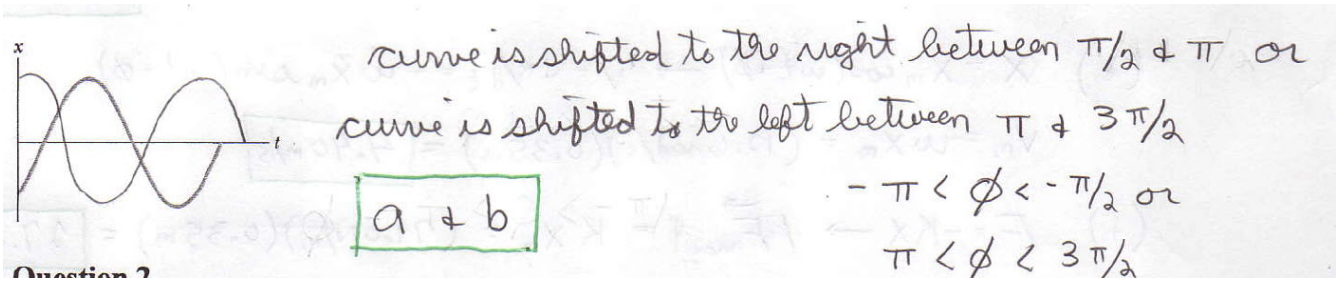 x
curve is shifted to the right between π/2 & π or
curve is shifted to the left between π & 3π/2
t
- π < φ < - π/2 or
a & b
π < φ < 3π/2
Question 2